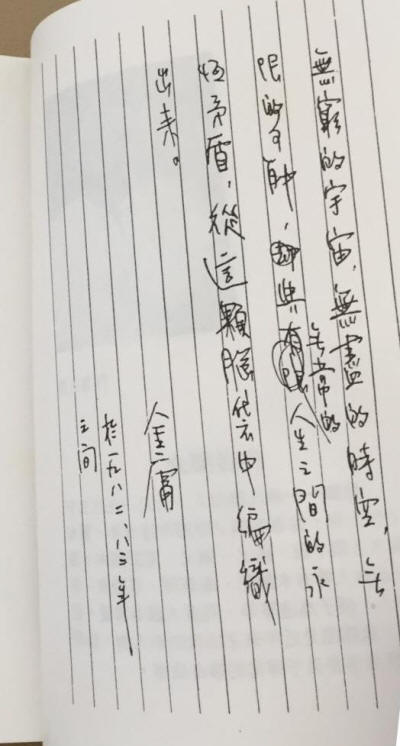 無窮的宇宙，無盡的時空，无
限的可能，與无常的人生之間的永
恆矛盾，從這顆腦袋中編織
出来。
金庸
於一九八二、八三年
之间